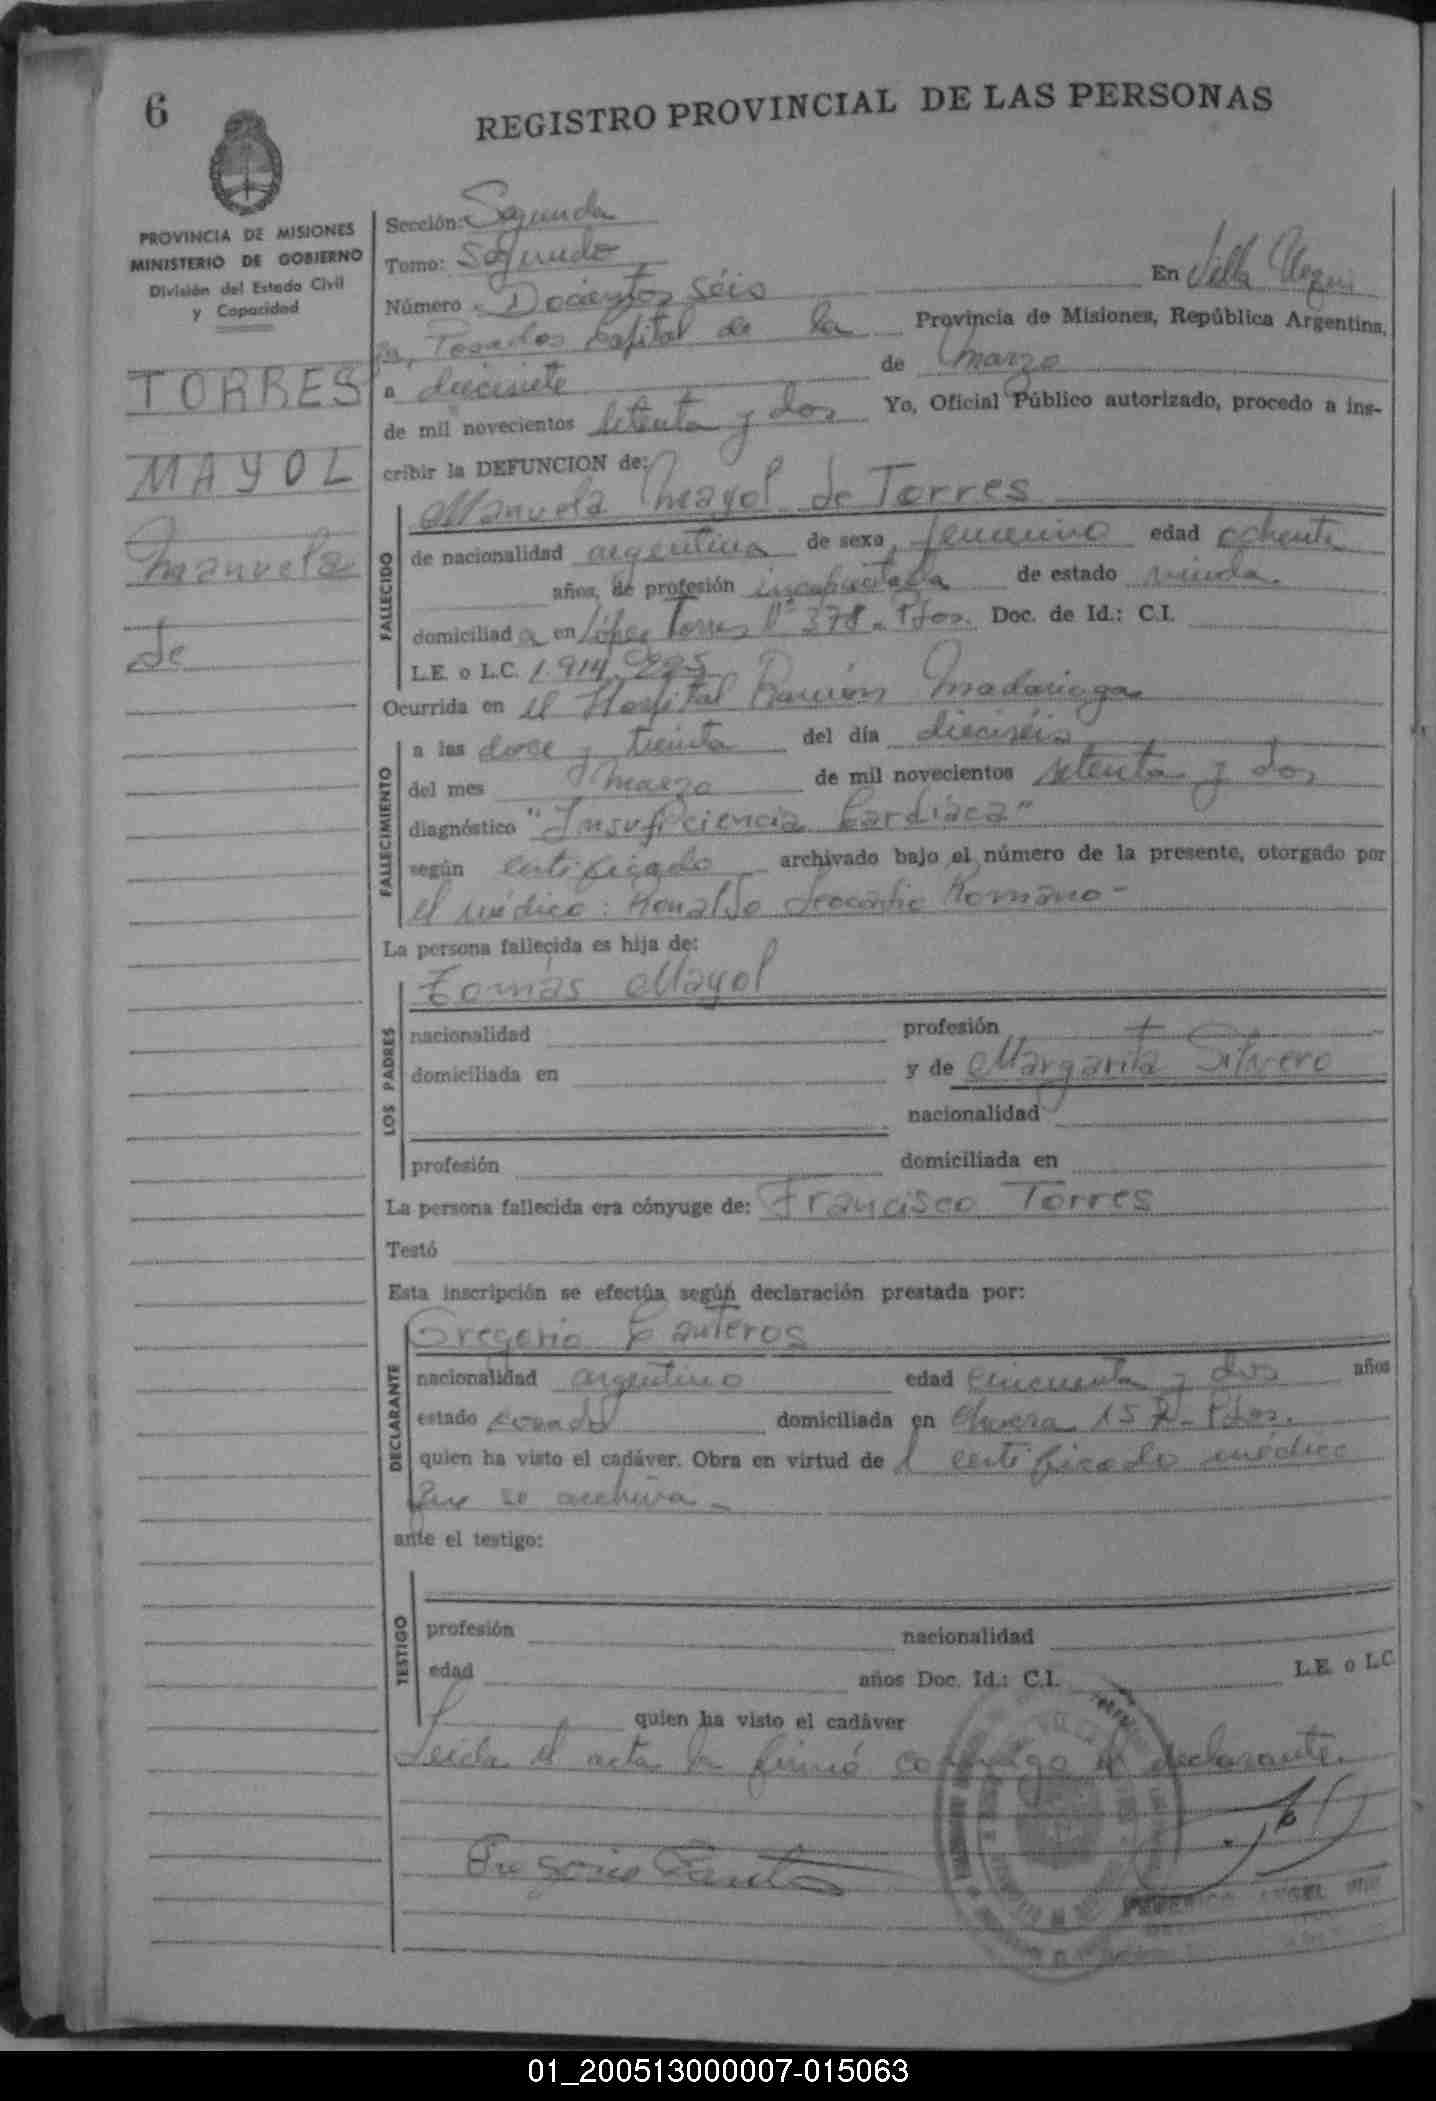 6
REGISTRO PROVINCIAL DE LAS PERSONAS
PROVINCIA DE MISIONES
MINISTERIO DE GOBIERNO
División del Estado Civil
y Capacidad
TORRES
MAYOL
Manuela
de
Sección: Segunda
Tomo: Segundo
Número Docientos séis En Villa Urqui
za, Posadas Capital de la Provincia de Misiones, República Argentina,
a diecisiete de Marzo
de mil novecientos setenta y dos Yo, Oficial Público autorizado, procedo a ins-
cribir la DEFUNCION de:
Manuela Mayol de Torres
FALLECIDO
de nacionalidad argentina de sexo femenino edad ochenta
años, de profesión de estado viuda.
domiciliad a en López Torres Nº 378 - Pdas. Doc. de Id.: C.I.
L.E. o L.C. 1.914.
Ocurrida en el Hospital Ramón Madariaga
FALLECIMIENTO
a las doce y treinta del día dieciséis
del mes Marzo de mil novecientos setenta y dos
diagnóstico "Insuficiencia Cardíaca"
según certificado archivado bajo el número de la presente, otorgado por
el médico: Ronaldo Romano -
La persona fallecida es hija de:
LOS PADRES
Tomás Mayol
nacionalidad profesión
domiciliada en y de Margarita Silvero
nacionalidad
profesión domiciliada en
La persona fallecida era cónyuge de: Francisco Torres
Testó
Esta inscripción se efectúa según declaración prestada por:
DECLARANTE
Gregorio Canteros
nacionalidad argentino edad cincuenta y dos años
estado casado domiciliada en Pdas.
quien ha visto el cadáver. Obra en virtud de l certificado médico
que se archiva -
ante el testigo:
TESTIGO
profesión nacionalidad
edad años Doc. Id.: C.I. L.E. o L.C.
quien ha visto el cadáver
Leída el acta la firmó conmigo el declarante.
Gregorio Canteros
01_200513000007-015063